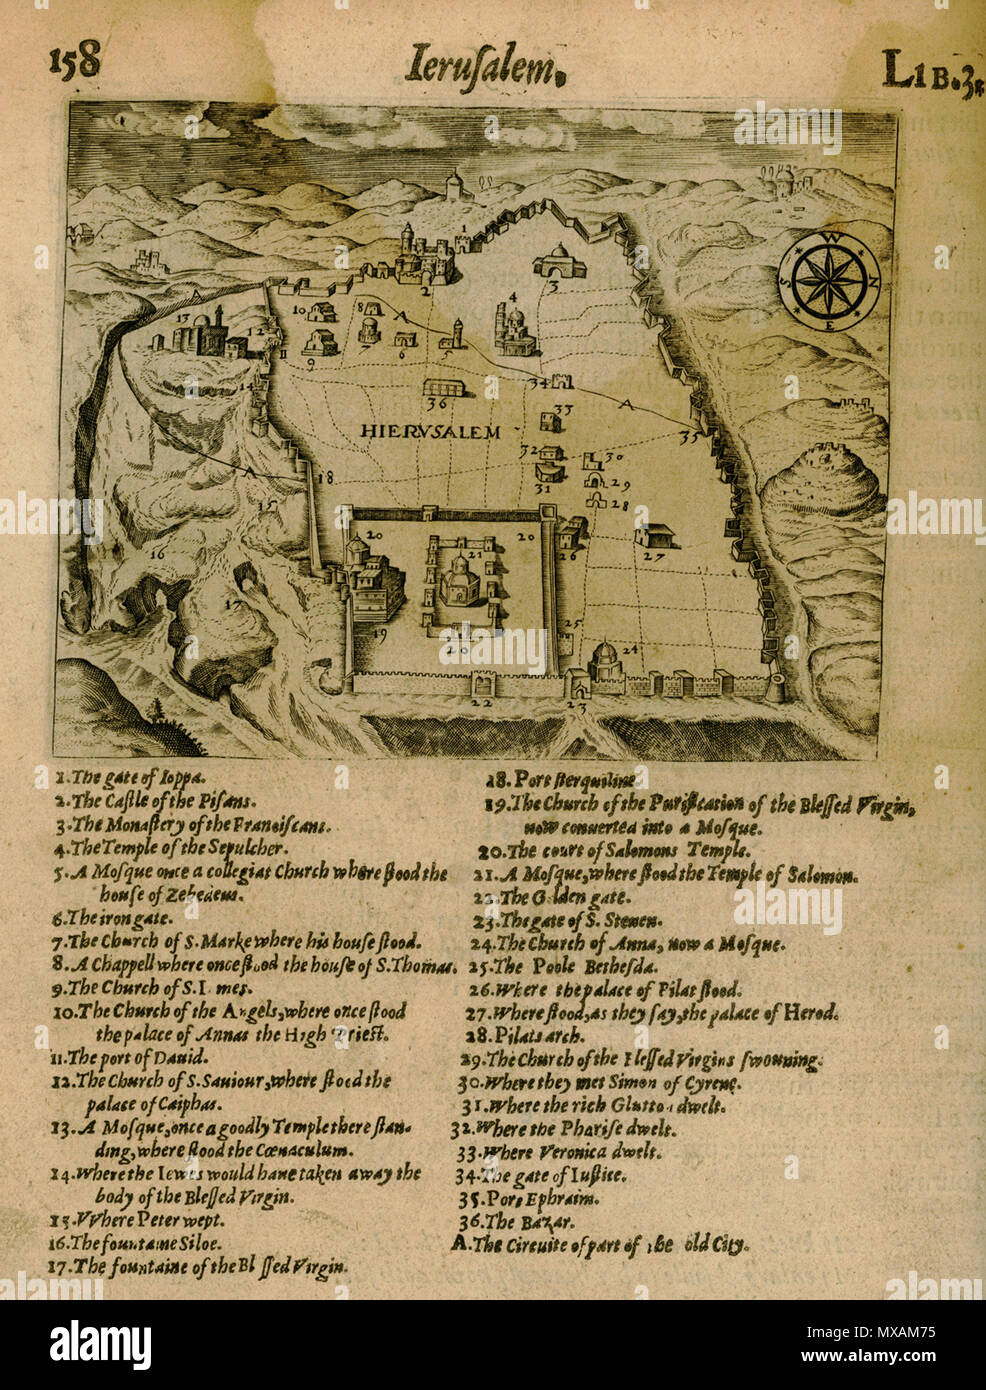 158 Ieruſalem. LIB.3.
W
S N
E
HIERVSALEM
1.The gate of Ioppa.
2.The Caſtle of the Piſans.
3.The Monaſtery of the Franciſcans.
4.The Temple of the Sepulcher.
5.A Moſque once a collegiat Church where ſtood the
houſe of Zebedeus.
6.The iron gate.
7.The Church of S.Marke where his houſe ſtood.
8.A Chappell where once ſtood the houſe of S.Thomas.
9.The Church of S.I mes.
10.The Church of the Angels,where once ſtood
the palace of Annas the High Prieſt.
11.The port of Dauid.
12.The Church of S.Sauiour,where ſtood the
palace of Caiphas.
13.A Moſque,once a goodly Temple there ſtan-
ding,where ſtood the Cœnaculum.
14.Where the Iewes would haue taken away the
body of the Bleſſed Virgin.
15.VVhere Peter wept.
16.The fountaine Siloe.
17.The fountaine of the Bl ſſed Virgin.
18.Port ſterquiline
19.The Church of the Purification of the Bleſſed Virgin,
now conuerted into a Moſque.
20.The court of Salomons Temple.
21.A Moſque,where ſtood the Temple of Salomon.
22.The G lden gate.
23.The gate of S. Steuen.
24.The Church of Anna, now a Moſque.
25.The Poole Bethesda.
26.Where the palace of Pilat ſtood.
27.Where ſtood,as they ſay,the palace of Herod.
28.Pilats arch.
29.The Church of the Bleſſed Virgins ſwouning.
30.Where they met Simon of Cyrene.
31.Where the rich Glutto dwelt.
32.Where the Phariſe dwelt.
33.Where Veronica dwelt.
34.The gate of Iuſtice.
35.Port Ephraim.
36.The Bazar.
A.The Circuite of part of the old City.
alamy
Image ID: MXAM75
www.alamy.com